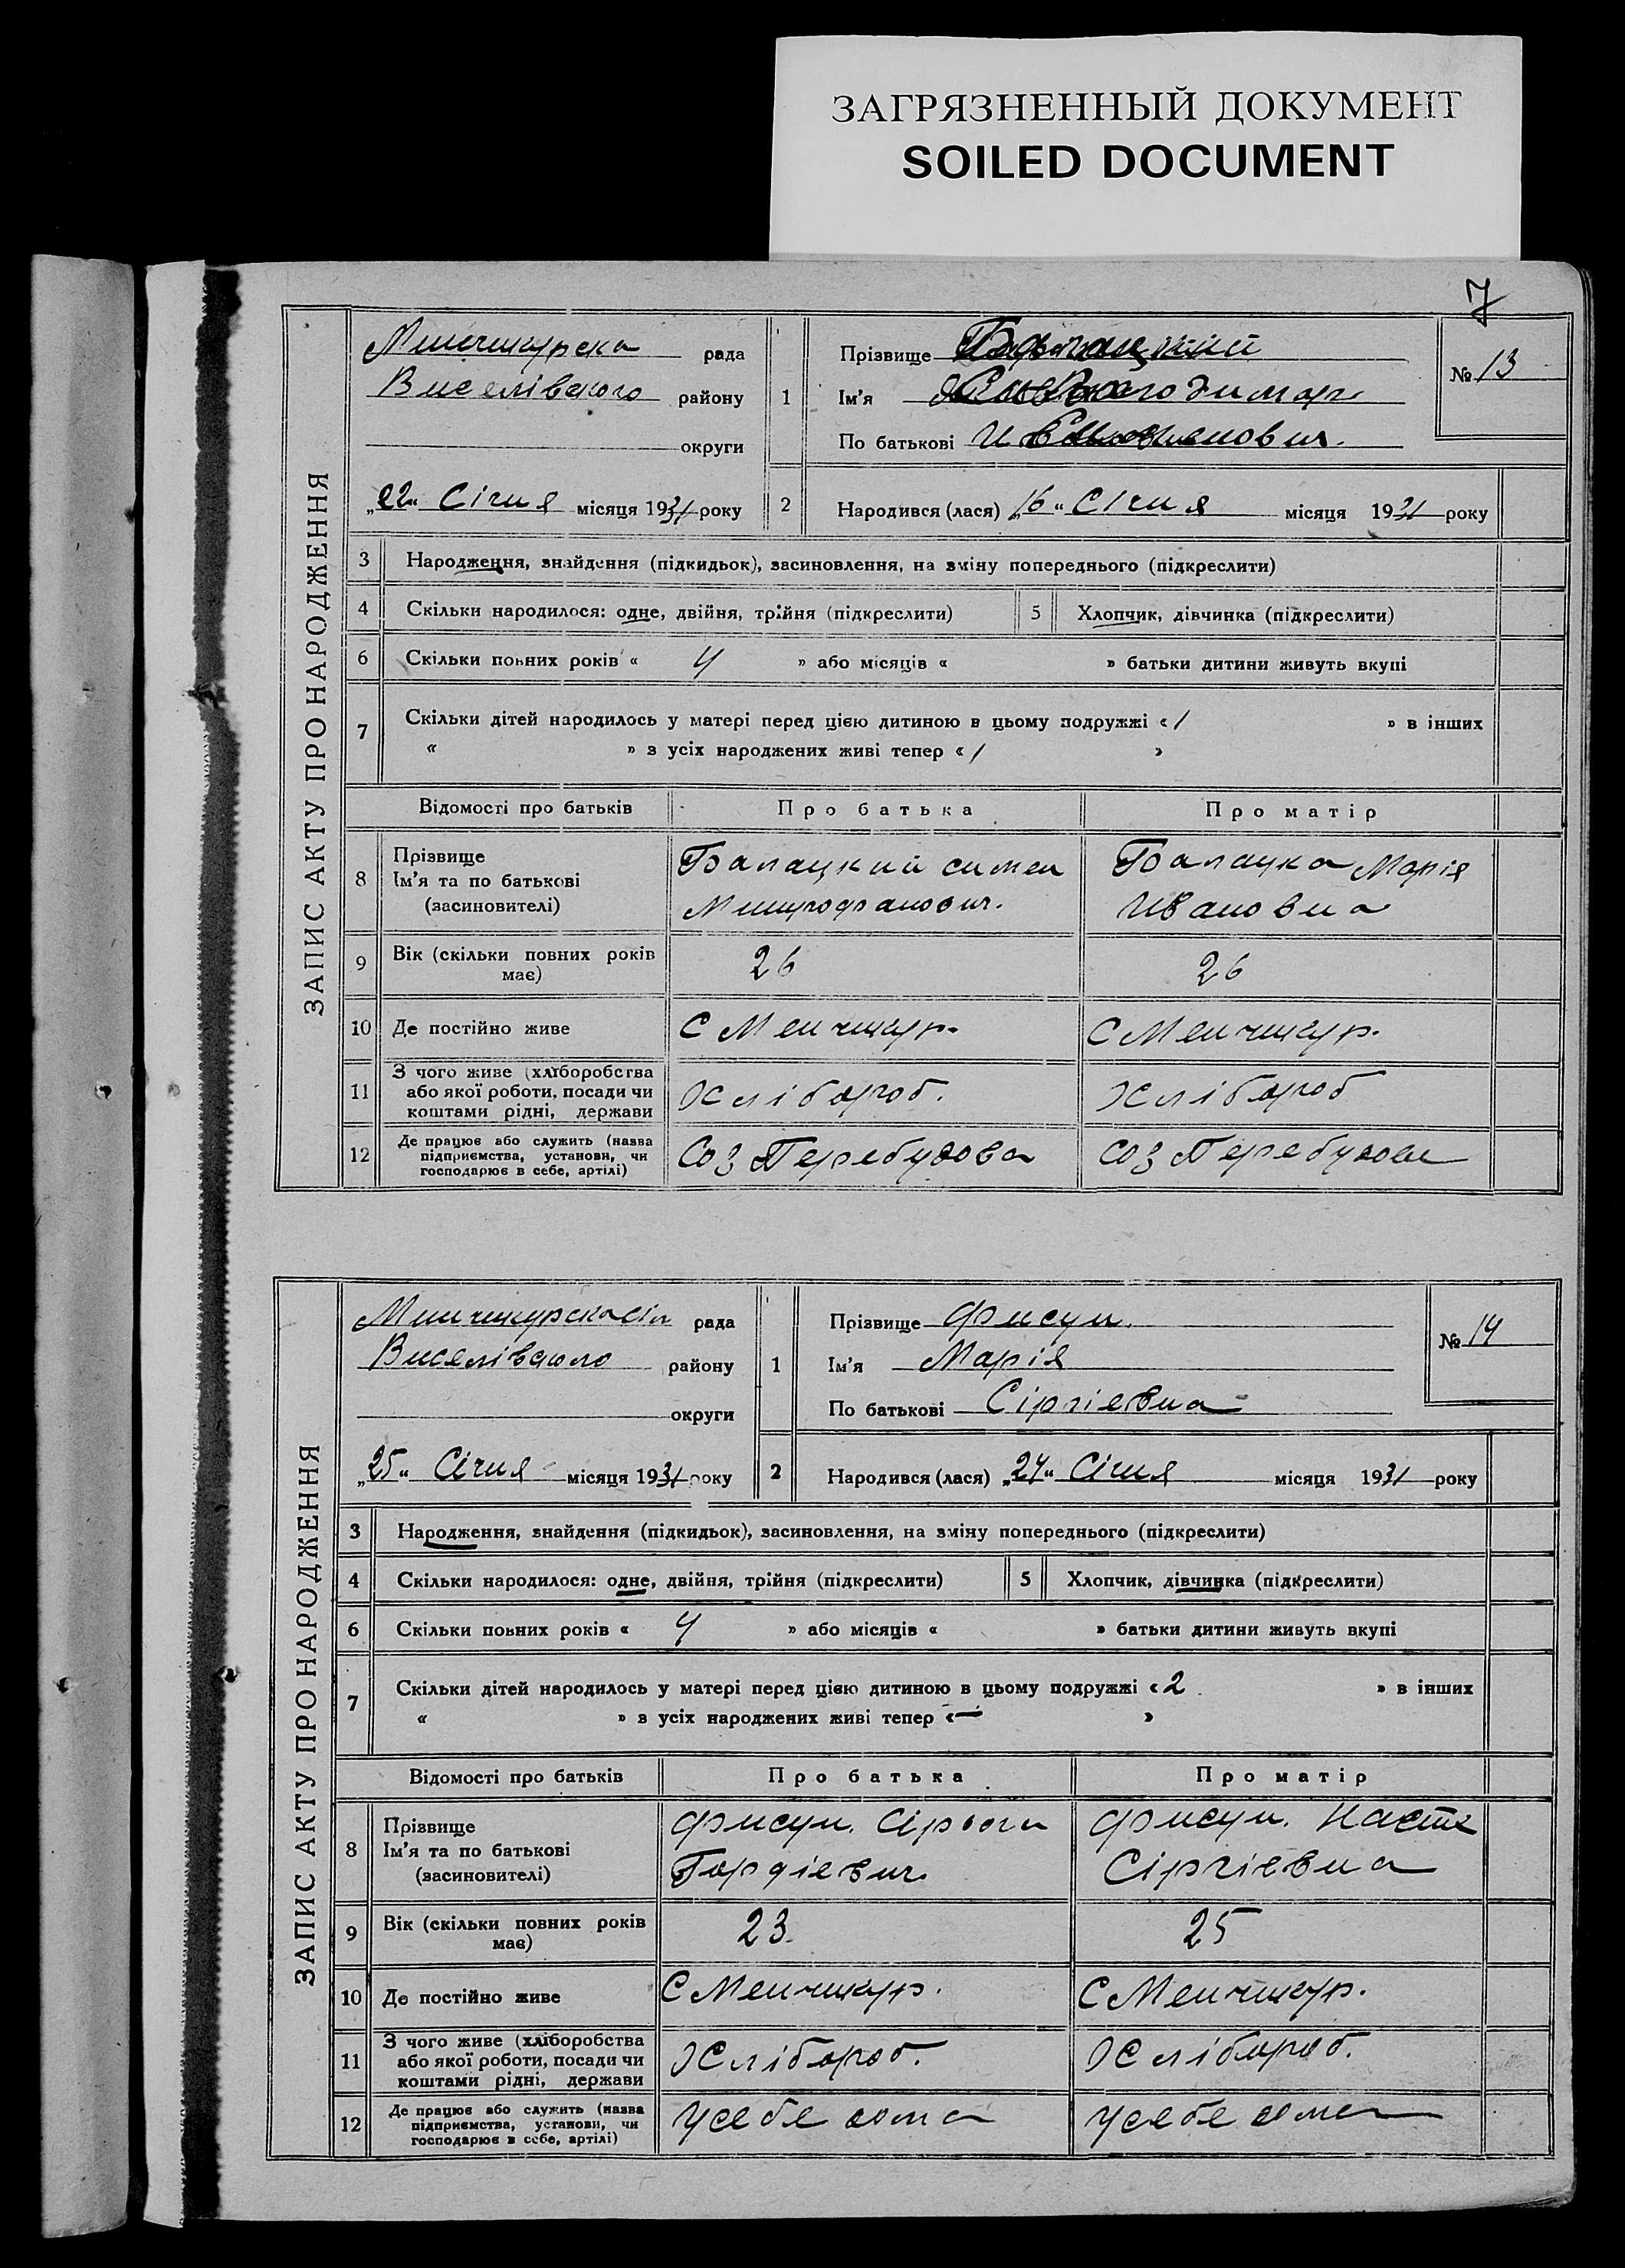 ЗАГРЯЗНЕННЫЙ ДОКУМЕНТ
SOILED DOCUMENT
7
ЗАПИС АКТУ ПРО НАРОДЖЕННЯ
рада
Виселівского району
округи
„22“ Січня місяця 1931 року
1
Прізвище
Ім'я
По батькові
№ 13
2 Народився (лася) „16“ Січня місяця 1931 року
3 Народження, знайдення (підкидьок), засиновлення, на зміну попереднього (підкреслити)
4 Скільки народилося: одне, двійня, трійня (підкреслити) 5 Хлопчик, дівчинка (підкреслити)
6 Скільки повних років « 4 » або місяців « » батьки дитини живуть вкупі
7 Скільки дітей народилось у матері перед цією дитиною в цьому подружжі « 1 » в інших
« » з усіх народжених живі тепер « 1 »
Відомості про батьків Про батька Про матір
8 Прізвище
Ім'я та по батькові
(засновителі)
Балацкий симен
Балацка Марія
Ивановна
9 Вік (скільки повних років має) 26 26
10 Де постійно живе С Менчикур. С Менчикур.
11 З чого живе (хліборобства
або якої роботи, посади чи
коштами рідні, держави
Хлібороб. Хлібороб
12 Де працює або служить (назва
підприємства, установи, чи
господарює в себе, артілі)
Соз Перебудова Соз Перебудова
ЗАПИС АКТУ ПРО НАРОДЖЕННЯ
рада
Виселівского району
округи
„25“ Січня місяця 1931 року
1
Прізвище Фисун.
Ім'я Марія
По батькові Сіргіевна
№ 14
2 Народився (лася) „24“ Січня місяця 1931 року
3 Народження, знайдення (підкидьок), засиновлення, на зміну попереднього (підкреслити)
4 Скільки народилося: одне, двійня, трійня (підкреслити) 5 Хлопчик, дівчинка (підкреслити)
6 Скільки повних років « 4 » або місяців « » батьки дитини живуть вкупі
7 Скільки дітей народилось у матері перед цією дитиною в цьому подружжі « 2 » в інших
« » в усіх народжених живі тепер « — »
Відомості про батьків Про батька Про матір
8 Прізвище
Ім'я та по батькові
(засиновителі)
Фисун.
Гордіевич.
Фисун. Настя
Сіргіевна
9 Вік (скільки повних років має) 23 25
10 Де постійно живе С Менчикур. С Менчикур.
11 З чого живе (хліборобства
або якої роботи, посади чи
коштами рідні, держави
Хлібороб. Хлібороб.
12 Де працює або служить (назва
підприємства, установи, чи
господарює в себе, артілі)
Усебе дома Усебе дома